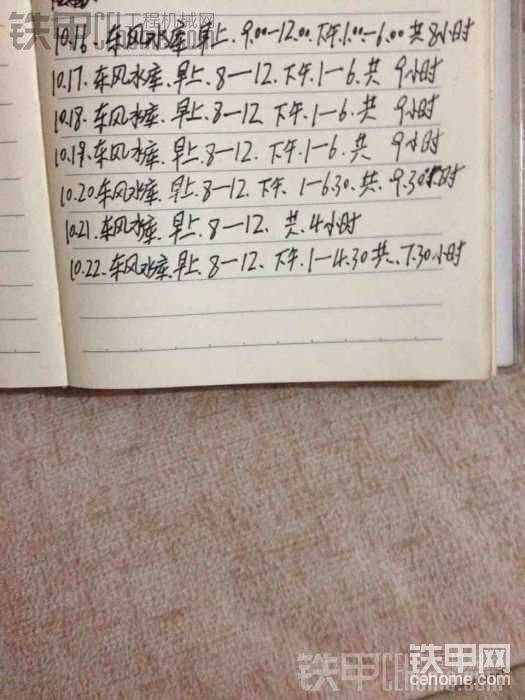 铁甲工程机械网
10.16.东风水库.早上.9.00-12.00.下午.1.00-6.00 共8小时
10.17.东风水库.早上.8—12.下午.1—6.共 9小时
10.18.东风水库.早上.8—12 下午.1—6.共 9小时
10.19.东风水库.早上.8—12.下午.1—6.共 9小时
10.20.东风水库.早上.8—12.下午.1—6.30.共.9.30小时
10.21.东风水库.早上.8—12.共.4小时
10.22.东风水库.早上.8—12.下午.1—4.30共.7.30小时
铁甲网
cehome.com